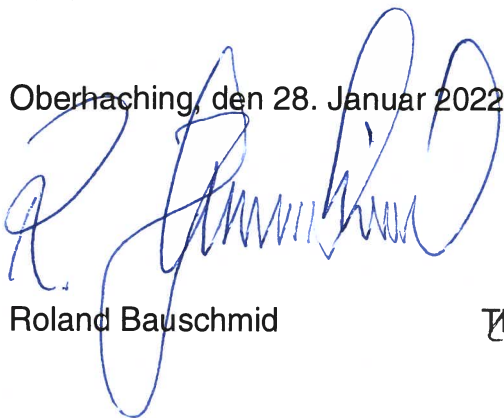 Oberhaching, den 28. Januar 2022
Roland Bauschmid